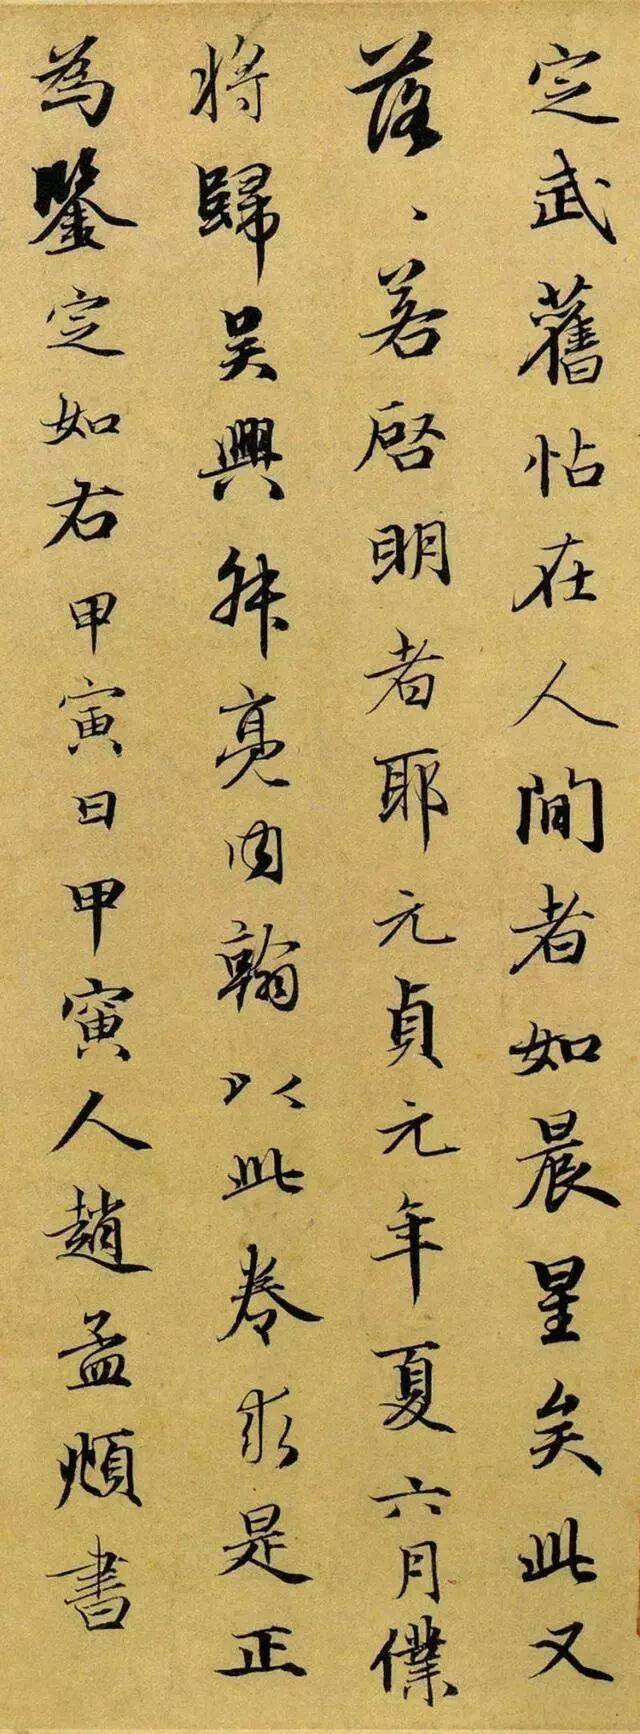 定武舊帖在人間者如晨星矣此又
落〻若啓明者耶元貞元年夏六月僕
將歸吳興叔亮內翰以此卷求是正
為鑒定如右甲寅日甲寅人趙孟頫書